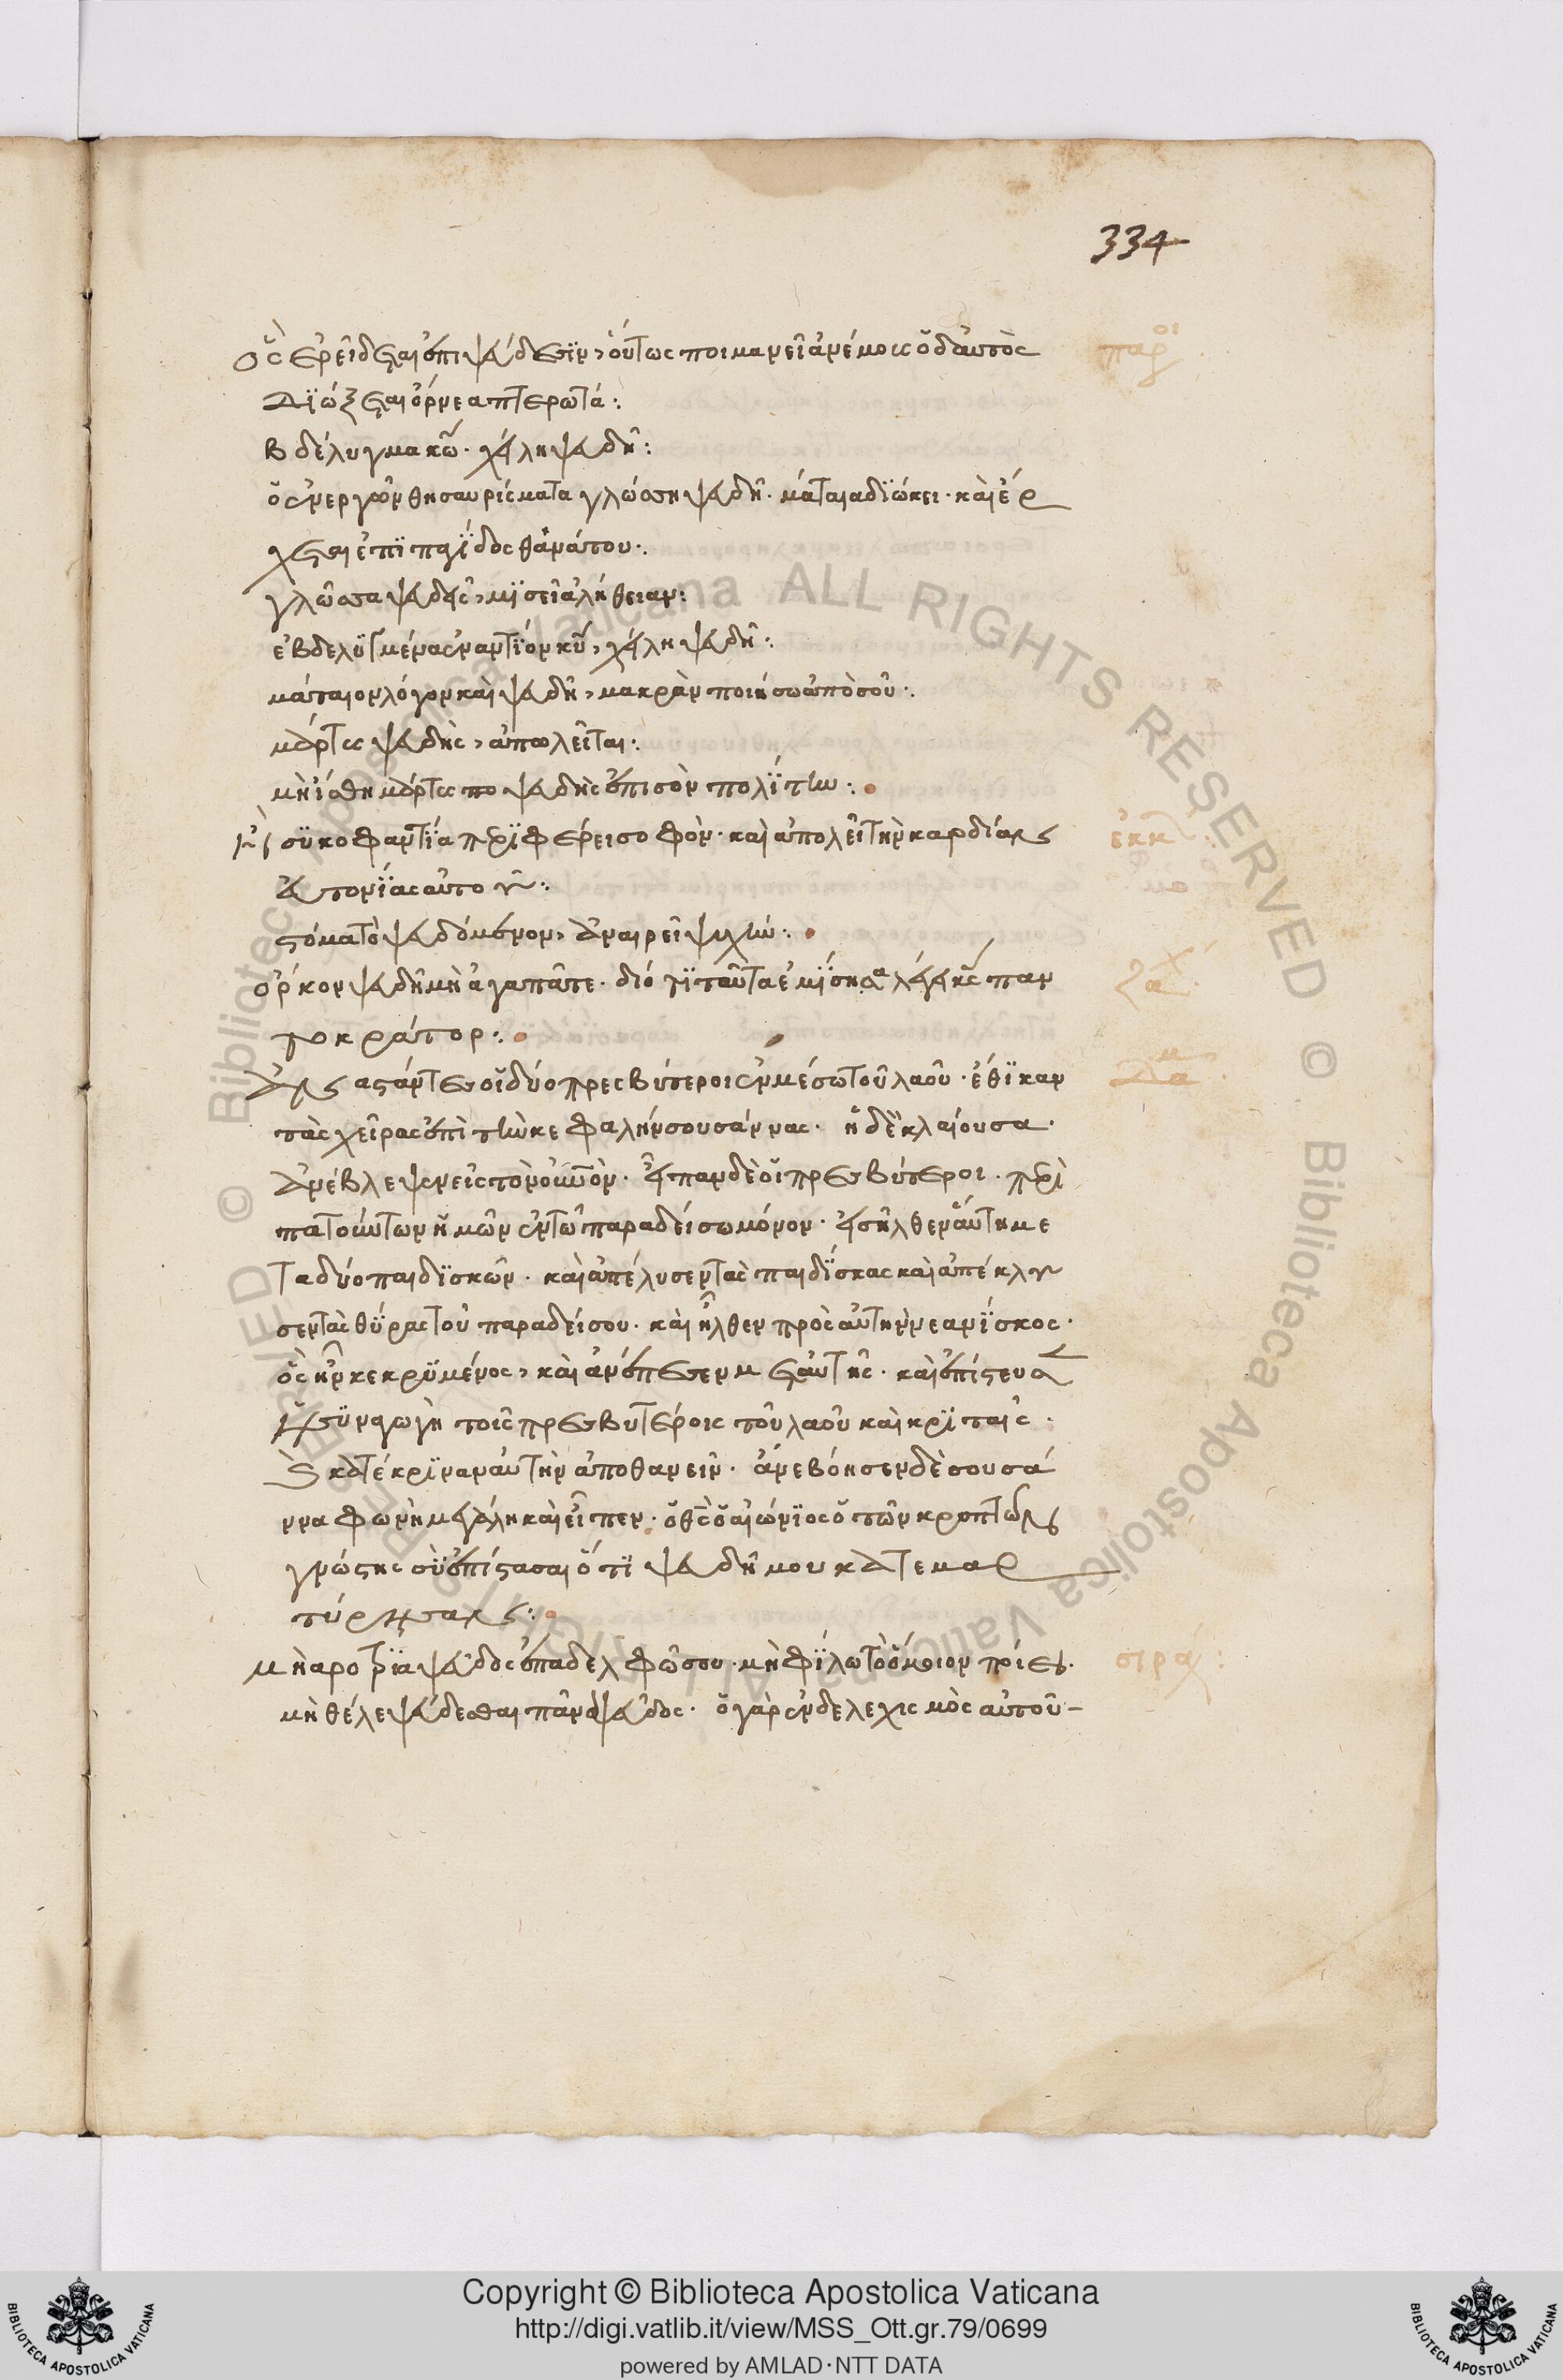 334
ὃς ἐρείδεται ἐπι ψεύδεσϊν, οὕτως ποιμανεῖ ἀνέμοις ὁ δ αὐτὸς παροι
διώξεται ὄρνεα πτερωτά:
βδέλυγμα κω̅. χείλη ψευδῆ:
ὁ ἐνεργῶν θησαυρίσματα γλώσση ψευδῆ. μάταια διώκει. καὶ ἔρ
χεται ἐπὶ παγίδος θανάτου:
γλῶσσα ψευδὴς, μισεῖ ἀλήθειαν:
ἐβδελυγμένα ἐναντίον κυ̅, χείλη ψευδῆ:
μάταιον λόγον καὶ ψευδῆ, μακρὰν ποίησον ἀπὸ σοῦ:
μάρτυς ψευδὴς, ἀπολεῖται:
μὴ ἴσθη μάρτυς ψευδὴς ἐπὶ σὸν πολίτην:
συκοφαντία περιφέρει σοφὸν. καὶ ἀπολεῖ τὴν καρδίαν ἐκκλ
εὐτονίας αὐτοῦ:
στόμα τὸ ψευδόμενον, ἀναιρεῖ ψυχήν:
ὅρκον ψευδῆ μὴ ἀγαπᾶτε. διότι ταῦτα ἐμίσησα λέγει κς̅ παν ζαχ
τοκράτορ:
ἀναστάντες οἱ δύο πρεσβύτεροι ἐν μέσω τοῦ λαοῦ. ἔθικαν δαν
τὰς χεῖρας ἐπὶ τὴν κεφαλὴν σουσάννας. ἡ δὲ κλαίουσα.
ἀνέβλεψεν εἰς τὸν οὐνὸν. εἶπαν δὲ οἱ πρεσβύτεροι. περι
πατούντων ἡμῶν ἐν τῶ παραδείσω μόνον. εἰσῆλθεν αὕτη με
τα δύο παιδισκῶν. καὶ ἀπέλυσεν τὰς παιδίσκας καὶ ἀπέκλυ
σεν τὰς θύρας τοῦ παραδείσου. καὶ ἦλθεν πρὸς αὐτὴν νεανίσκος.
ὃς ἦν κεκρυμένος, καὶ ἀνέπεσεν μετ αὐτῆς. καὶ ἐπίστευσεν
ἡ συναγωγὴ τοῖς πρεσβυτέροις τοῦ λαοῦ καὶ κριταῖς.
καὶ κατέκριναν αὐτὴν ἀποθανεῖν. ἀνεβόησεν δὲ σουσά
ννα φωνὴ μεγάλη καὶ εἶπεν. ὁ θς̅ ὁ αἰώνιος ὁ τῶν κρυπτῶν
γνώστης σὺ ἐπίστασαι ὅτι ψευδῆ μου κατεμαρ
τύρησαν:
μὴ αροτρία ψεῦδος ἐπ αδελφῶ σου. μὴ φίλω τὸ ὅμοιον ποίει. σιραχ:
μὴ θέλε ψεύδεσθαι πᾶν ψεῦδος. ὁ γὰρ ἐνδελεχισμὸς αὐτοῦ-
© Biblioteca Apostolica Vaticana ALL RIGHTS RESERVED © Biblioteca Apostolica Vaticana ALL RIGHTS RESERVED
Copyright © Biblioteca Apostolica Vaticana
http://digi.vatlib.it/view/MSS_Ott.gr.79/0699
powered by AMLAD·NTT DATA
BIBLIOTECA APOSTOLICA VATICANA
BIBLIOTECA APOSTOLICA VATICANA